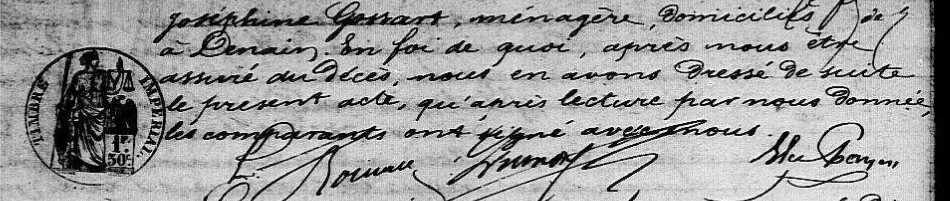 Joséphine Gossart, ménagère, domiciliés de
à Denain. En foi de quoi, après nous être
assuré du décès, nous en avons dressé de suite
le présent acte, qu'après lecture par nous donnée,
les comparants ont signé avec nous.
TIMBRE IMPÉRIAL
1F.
50c.